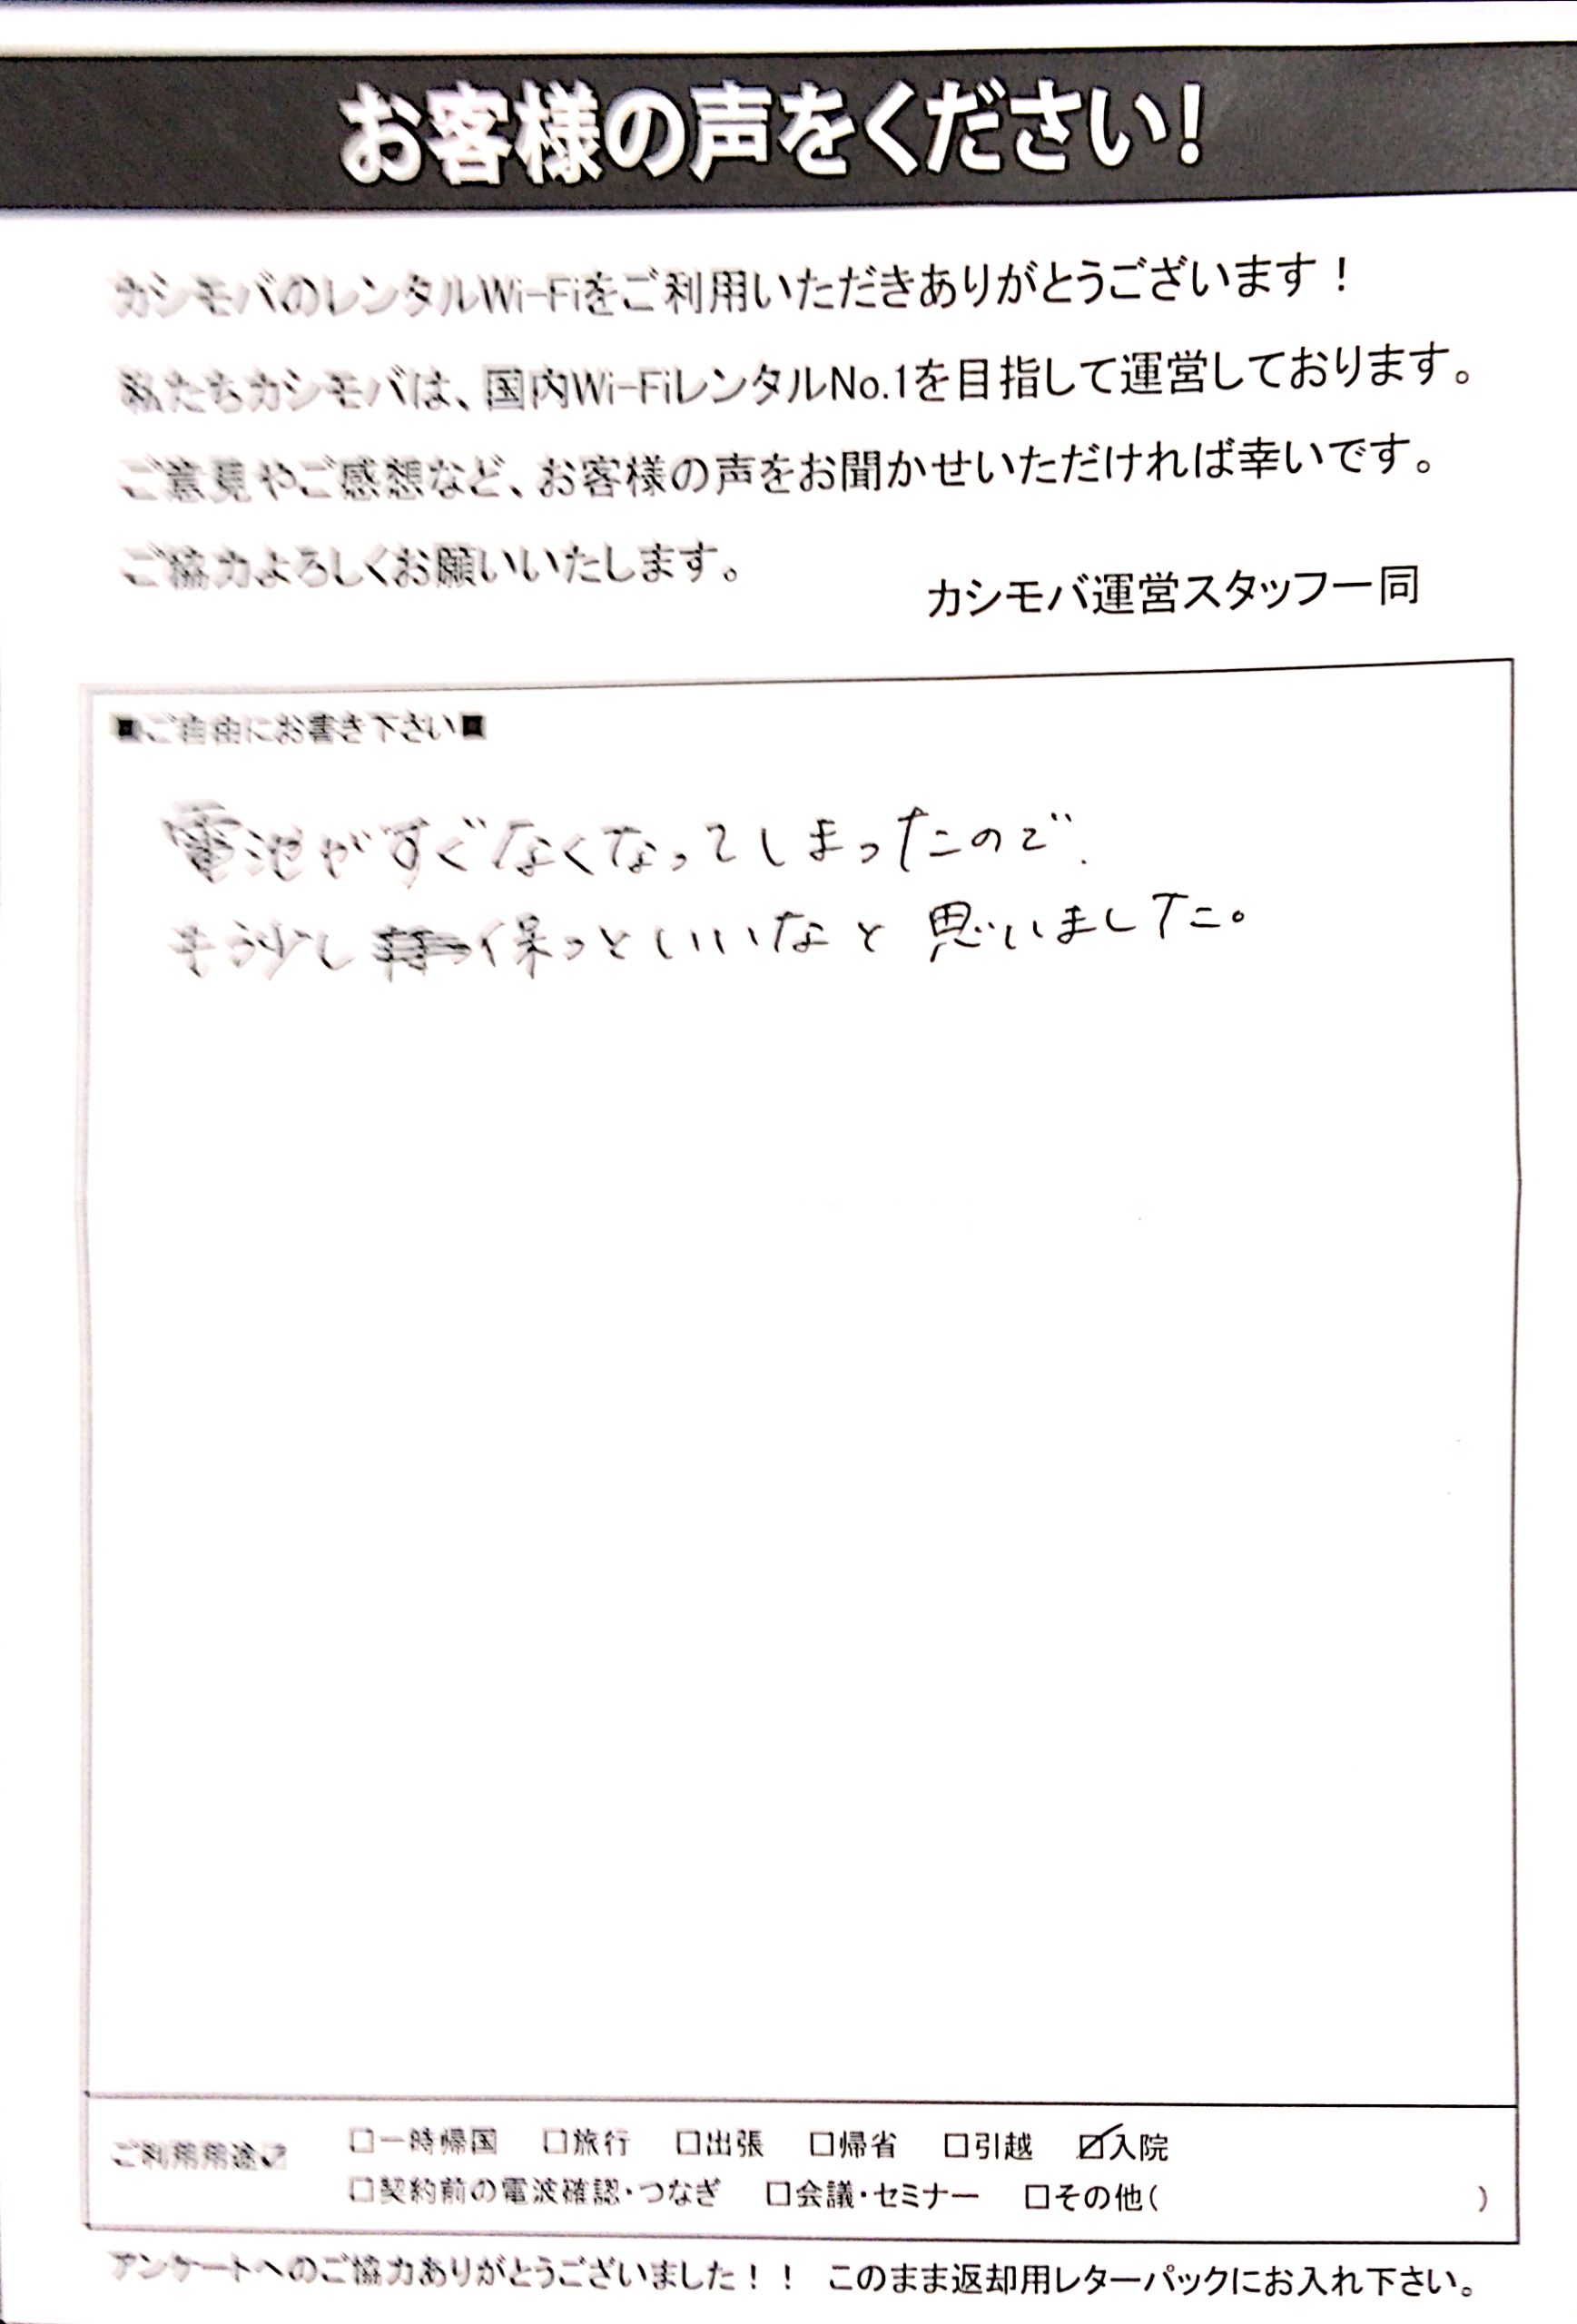 お客様の声をください!
カシモバのレンタルWi-Fiをご利用いただきありがとうございます！
私たちカシモバは、国内Wi-FiレンタルNo.1を目指して運営しております。
ご意見やご感想など、お客様の声をお聞かせいただければ幸いです。
ご協力よろしくお願いいたします。
カシモバ運営スタッフ一同
■ご自由にお書き下さい■
電池がすぐなくなってしまったので、
もう少し保っといいなと思いました。
ご利用用途☑ □一時帰国 □旅行 □出張 □帰省 □引越 ☑入院
□契約前の電波確認・つなぎ □会議・セミナー □その他( )
アンケートへのご協力ありがとうございました！！ このまま返却用レターパックにお入れ下さい。